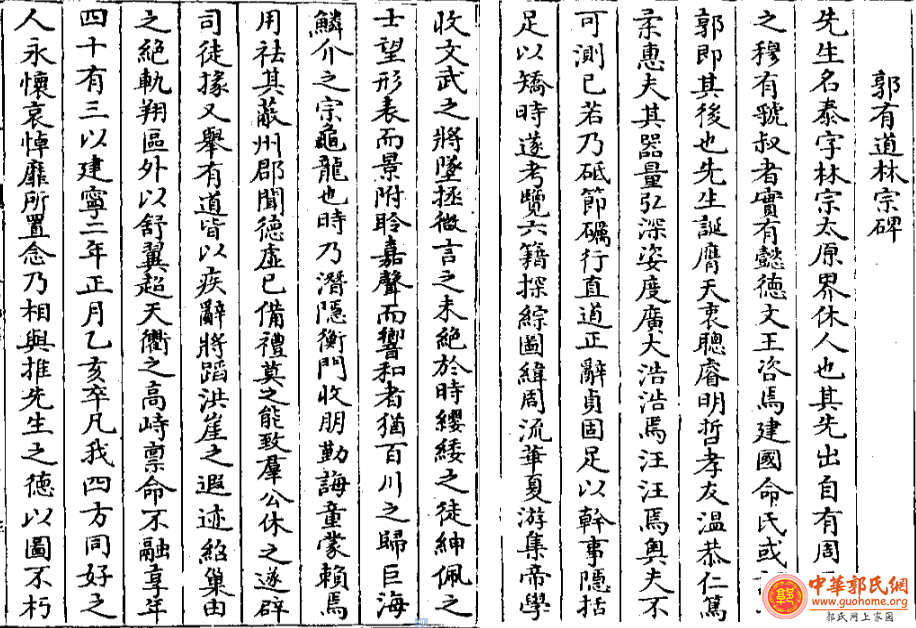 郭有道林宗碑
先生名泰字林宗太原界休人也其先出自有周
之穆有虢叔者實有懿德文王咨焉建國命氏或
郭即其後也先生誕膺天衷聰睿明哲孝友溫恭仁篤
柔惠夫其器量弘深姿度廣大浩浩焉汪汪焉奧夫不
可測已若乃砥節礪行直道正辭貞固足以幹事隱括
足以矯時遂考覽六籍探綜圖緯周流華夏游集帝學
收文武之將墜拯微言之未絕於時纓緌之徒紳佩之
士望形表而景附聆嘉聲而響和者猶百川之歸巨海
鱗介之宗龜龍也時乃潛隱衡門收朋勤誨童蒙賴焉
用祛其蔽州郡聞德虛已備禮莫之能致羣公休之遂辟
司徒掾又舉有道皆以疾辭將蹈洪崖之遐迹紹巢由
之絕軌翔區外以舒翼超天衢之高峙禀命不融享年
四十有三以建寧二年正月乙亥卒凡我四方同好之
人永懷哀悼靡所置念乃相與推先生之德以圖不朽
中華郭氏網
www.guohome.org
郭氏网上家园